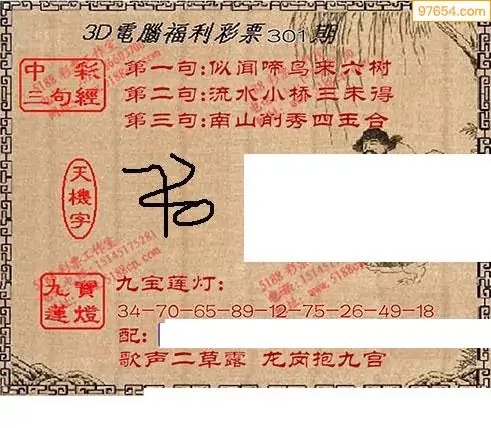 97654.com
3D電腦福利彩票301期
中彩三句經
第一句:似闻啼鸟来六树
第二句:流水小桥三未得
第三句:南山削秀四玉合
天機字
九寶蓮燈
九宝莲灯:
34-70-65-89-12-75-26-49-18
配:
歌声二草露 龙岗抱九宫